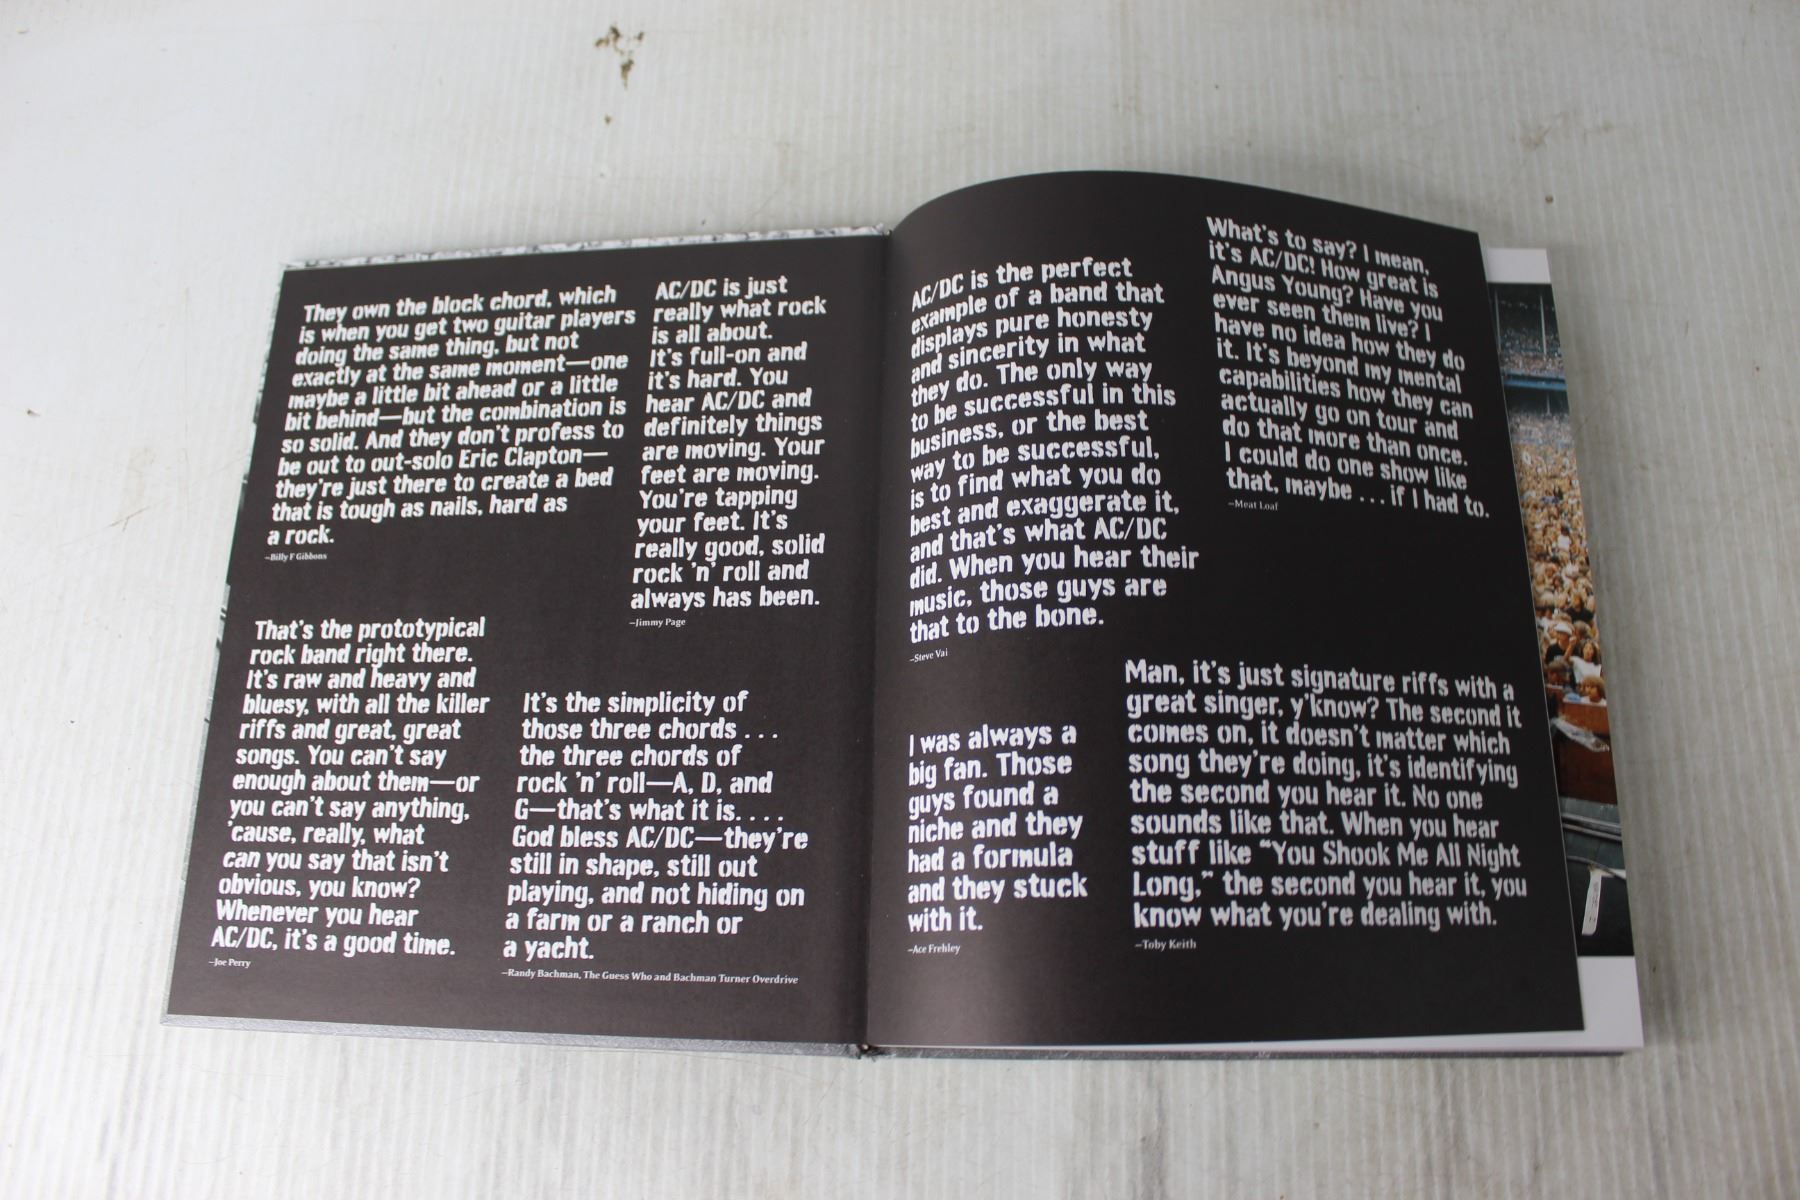 They own the block chord, which
is when you get two guitar players
doing the same thing, but not
exactly at the same moment—one
maybe a little bit ahead or a little
bit behind—but the combination is
so solid. And they don't profess to
be out to out-solo Eric Clapton—
they're just there to create a bed
that is tough as nails, hard as
a rock.
—Billy F Gibbons
AC/DC is just
really what rock
is all about.
It's full-on and
it's hard. You
hear AC/DC and
definitely things
are moving. Your
feet are moving.
You're tapping
your feet. It's
really good, solid
rock 'n' roll and
always has been.
—Jimmy Page
That's the prototypical
rock band right there.
It's raw and heavy and
bluesy, with all the killer
riffs and great, great
songs. You can't say
enough about them—or
you can't say anything,
'cause, really, what
can you say that isn't
obvious, you know?
Whenever you hear
AC/DC, it's a good time.
—Joe Perry
It's the simplicity of
those three chords . . .
the three chords of
rock 'n' roll—A, D, and
G—that's what it is. . . .
God bless AC/DC—they're
still in shape, still out
playing, and not hiding on
a farm or a ranch or
a yacht.
—Randy Bachman, The Guess Who and Bachman Turner Overdrive
AC/DC is the perfect
example of a band that
displays pure honesty
and sincerity in what
they do. The only way
to be successful in this
business, or the best
way to be successful,
is to find what you do
best and exaggerate it,
and that's what AC/DC
did. When you hear their
music, those guys are
that to the bone.
—Steve Vai
What's to say? I mean,
it's AC/DC! How great is
Angus Young? Have you
ever seen them live? I
have no idea how they do
it. It's beyond my mental
capabilities how they can
actually go on tour and
do that more than once.
I could do one show like
that, maybe . . . if I had to.
—Meat Loaf
I was always a
big fan. Those
guys found a
niche and they
had a formula
and they stuck
with it.
—Ace Frehley
Man, it's just signature riffs with a
great singer, y'know? The second it
comes on, it doesn't matter which
song they're doing, it's identifying
the second you hear it. No one
sounds like that. When you hear
stuff like "You Shook Me All Night
Long," the second you hear it, you
know what you're dealing with.
—Toby Keith